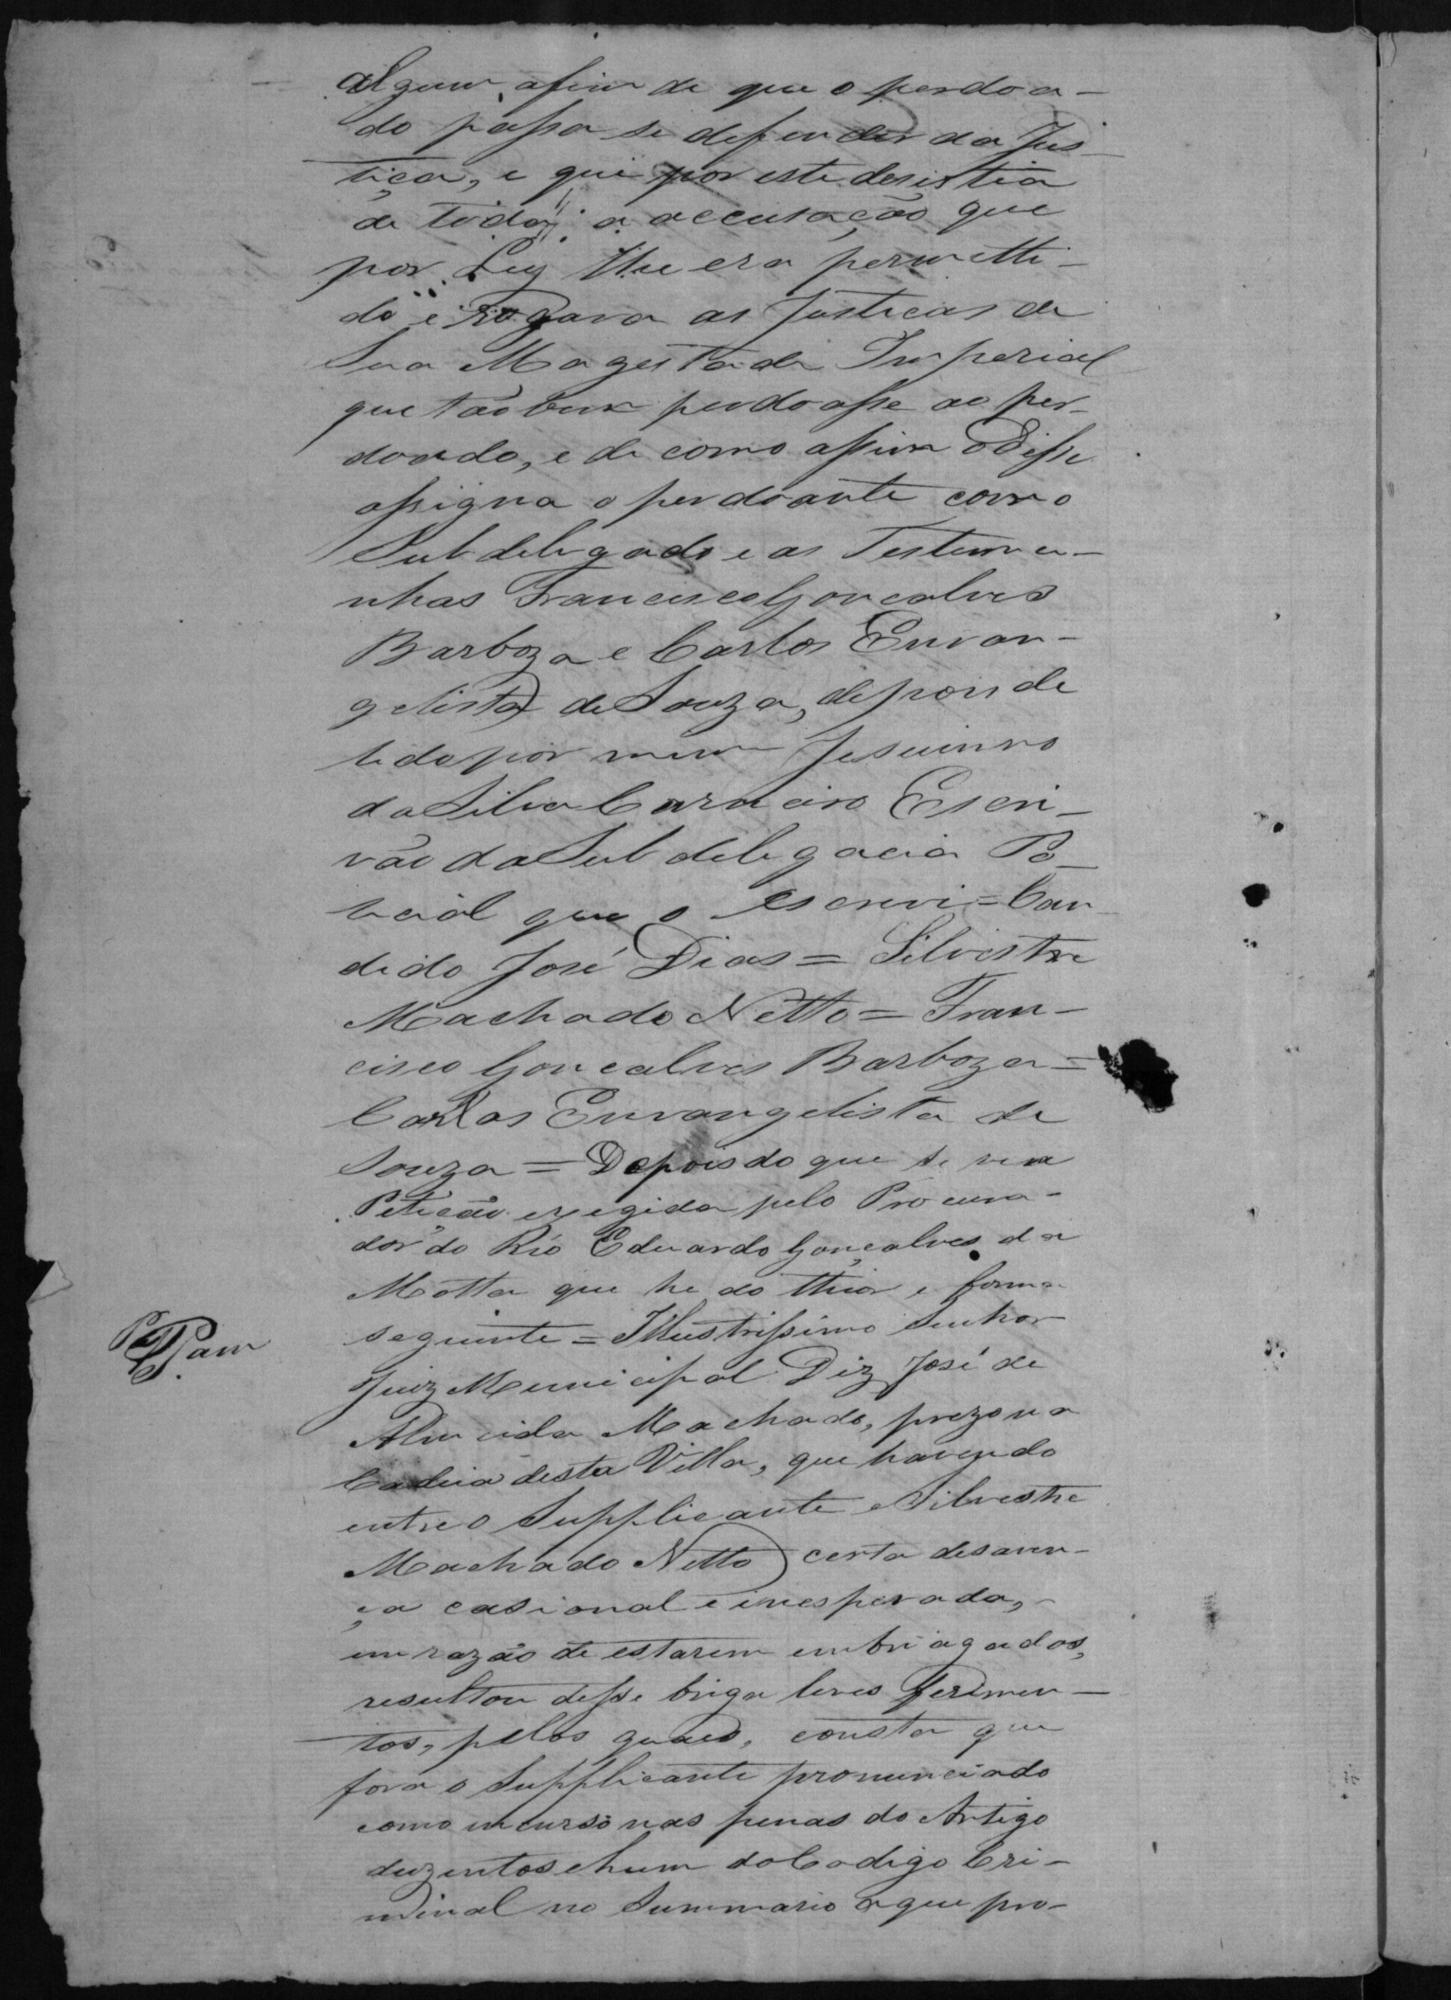 algum, afim de que o perdoa-
do possa se defender da Jus-
tiça, e que por este desistia
de toda a accusação que
por Ley lhe era permitti-
do e rogava as Justicas de
Sua Magestade Imperial
que tãobem perdoasse ao per-
doado, e de como assim o disse
assigna o perdoante com o
Subdelegado e as Testemu-
nhas Francisco Gonçalves
Barboza e Carlos Envan-
gelista de Souza, depois de
lido por mim Jesuinno
da Silva Carneiro Escri-
vão da Subdelegacia Po-
licial que o escrevi = Can-
dido José Dias = Silvestre
Machado Netto = Fran-
cisco Gonçalves Barboza =
Carlos Envangelista de
Souza = Depois do que se ve a
Petição exegida pelo Procura-
dor do Rio Eduardo Gonçalves da
Motta que he do thior e forma
seguinte = Illustrissimo Senhor
Juiz Municipal Diz José de
Almeida Machado, prezo na
Cadeia desta Villa, que havendo
entre o Supplicante e Silvestre
Machado Netto certa desaven-
ça casional e inesperada,
em razão de estarem embriagados,
resultou desse briga leves ferimen-
tos, pelos quaes, consta que
fora o Supplicante pronunciado
como incurso nas penas do Artigo
duzentos e hum do Codigo Cri-
minal no Summario a que pro-